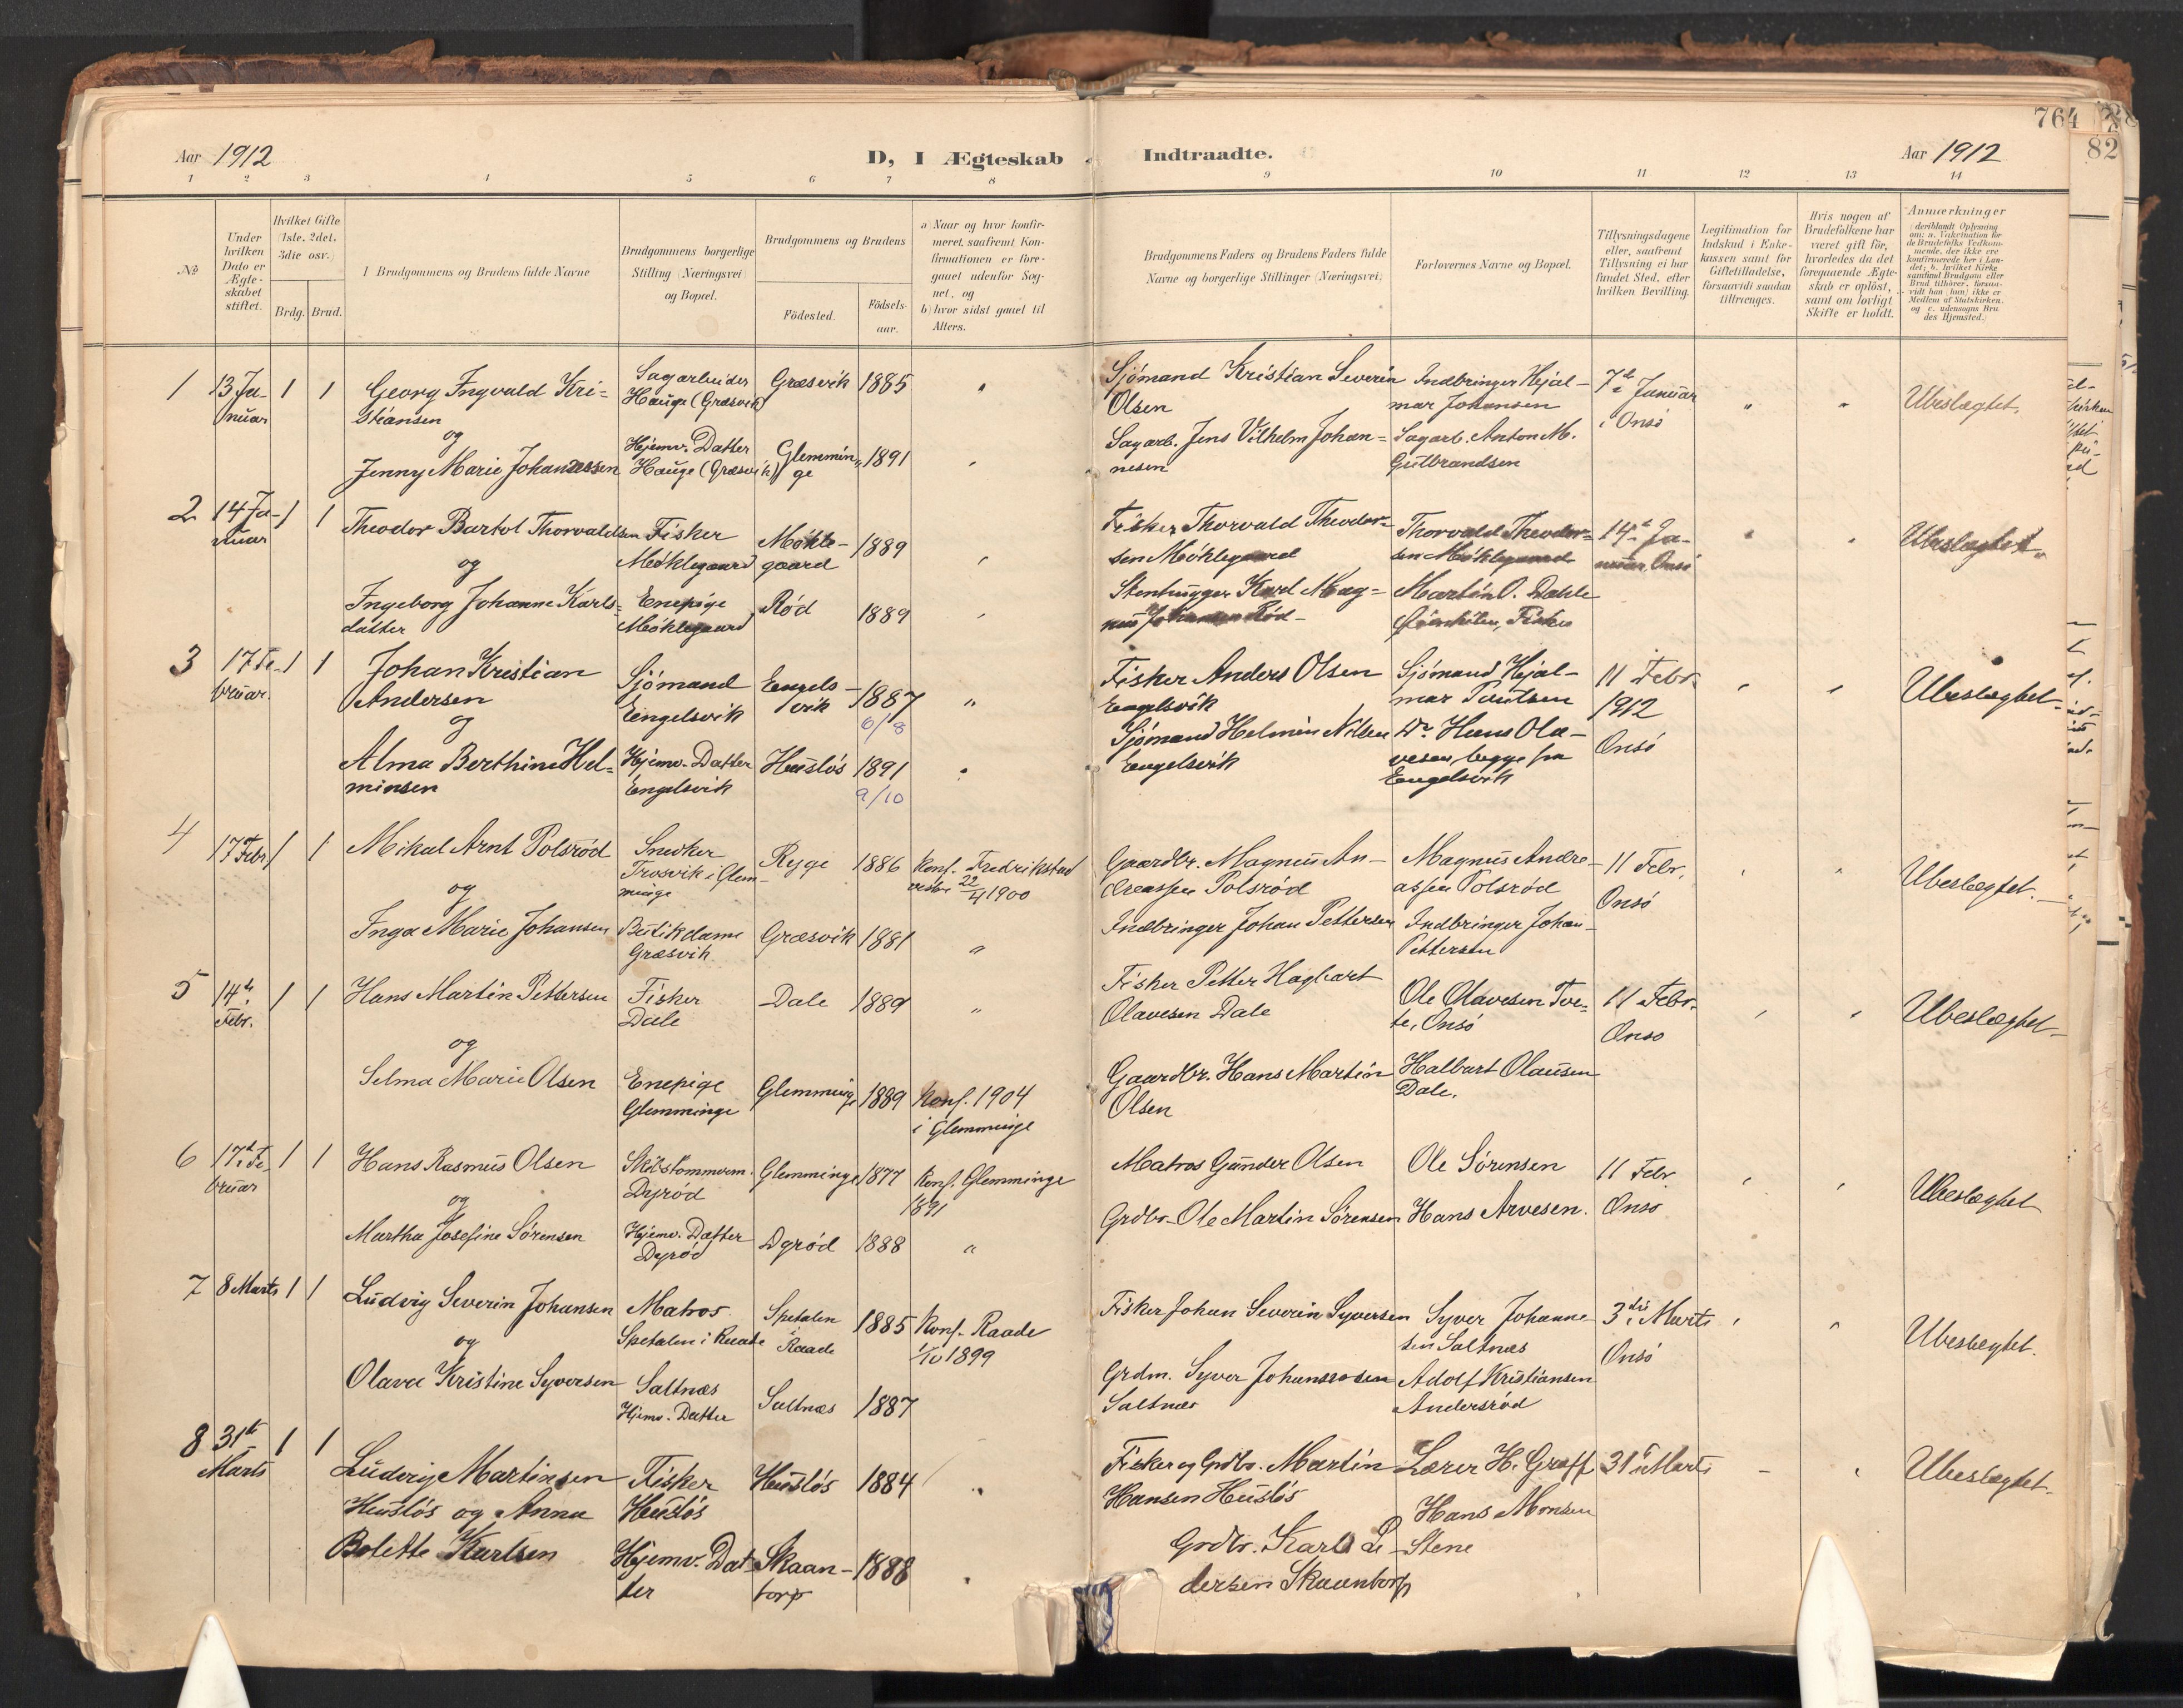 764
82
Aar 1912
D, I Ægteskab Indtraadte.
Aar 1912
1 2 3 4 5 6 7 8 9 10 11 12 13 14
No
Under hvilken Dato er Ægteskabet stiftet.
Hvilket Gifte (1ste, 2det, 3die osv.)
Brdg. Brud.
I Brudgommens og Brudens fulde Navne
Brudgommens borgerlige Stilling (Næringsvei) og Bopæl.
Brudgommens og Brudens
Födested.
Födselsaar.
a) Naar og hvor konfirmeret, saafremt Konfirmationen er foregaaet udenfor Sognet, og
b) hvor sidst gaaet til Alters.
Brudgommens Faders og Brudens Faders fulde Navne og borgerlige Stillinger (Næringsvei)
Forlovernes Navne og Bopæl.
Tillysningsdagene eller, saafremt Tillysning ei har fundet Sted, efter hvilken Bevilling.
Legitimation for Indskud i Enkekassen samt for Giftetilladelse, forsaavidt saadan tiltrænges.
Hvis nogen af Brudefolkene har været gift för, hvorledes da det foregaaende Ægteskab er oplöst, samt om lovligt Skifte er holdt.
Anmærkninger (deriblandt Oplysning om: a. Vakcination for de Brudefolks Vedkommende, der ikke ere konfirmerede her i Landet; b. hvilket Kirkesamfund Brudgom eller Brud tilhörer, forsaavidt han (hun) ikke er Medlem af Statskirken, og c. udensogns Brudes Hjemsted.)
1 13 Ja- 1 1 Georg Ingvald Kri= Sagarbeider Græsvik 1885 " Sjömand Kristian Severin Indbringer Hjal- 7de Januar " " Ubeslægtet.
nuar stiansen Hauge (Græsvik) Olsen mar Johansen i Onsö
og
Jenny Marie Johannessen Hjemv. Datter Glemmin- 1891 " Sagarb. Jens Vilhelm Johan= Sagarb. Anton M.
Hauge (Græsvik) ge nesen Gulbrandsen
2 14 Ja- 1 1 Theodor Bartol Thorvaldsen Fisker Möкle- 1889 " Fisker Thorvald Theodor- Thorvald Theodor- 14de Ja- " " Ubeslægtet.
nuar Möklegaard gaard sen Möklegaard sen Möklegaard nuar, Onsö
og
Ingeborg Johanne Karls= Enepige Röd 1889 " Stenhugger Karl Mag= Martin O. Dahle
datter Möklegaard nus Johansen Röd Fisker
3 17 Fe- 1 1 Johan Kristian Sjömand Engels- 1887 " Fisker Anders Olsen Sjömand Hjal- 11 Febr. " " Ubeslægtet.
bruar. Andersen Engelsvik vik 6/8 Engelsvik mar 1912
og
Alma Berthine Hel= Hjemv. Datter Huslös 1891 " Sjömand Helmin Nilsen Do Hans Ola- Onsö
minsen Engelsvik 9/10 Engelsvik vesen, begge fra
Engelsvik
4 17 Febr. 1 1 Mikal Arnt Polsröd Snedker Rygge 1886 Konf. Fredrikstad Gaardbr. Magnus An- Magnus Andre- 11 Febr. " " Ubeslægtet.
Trosvik i Glem- 22/4 1900 dreassen Polsröd assen Polsröd Onsö
minge
og
Inga Marie Johansen Butikdame Græsvik 1881 " Indbringer Johan Pettersen Indbringer Johan
Græsvik Pettersen
5 14de 1 1 Hans Martin Pettersen Fisker Dale 1889 " Fisker Petter Hagbart Ole Olavesen Tve- 11 Febr. " " Ubeslægtet
Febr. Dale Olavesen Dale te, Onsö Onso
og
Selma Marie Olsen Enepige Glemminge 1889 Konf. 1904 Gaardbr. Hans Martin Halbart Olausen
Glemminge i Glemminge Olsen Dale.
6 17de Fe- 1 1 Hans Rasmus Olsen Skibstömmerm. Glemminge 1877 Konf. Glemminge Matros Gunder Olsen Ole Sörensen 11 Febr. " " Ubeslægtet
bruar Dyröd 1891 Onso
og
Martha Josefine Sörensen Hjemv. Datter Dyröd 1888 " Grdbr. Ole Martin Sörensen Hans Arvesen.
Dyröd
7 8 Marts 1 1 Ludvig Severin Johansen Matros Spetalen 1885 Konf. Raade Fisker Johan Severin Syversen Syver Johanne- 3die Marts " " Ubeslægtet.
Spetalen i Raade i Raade 1/10 1899 sen Saltnæs Onsö
og
Olava Kristine Syversen Saltnæs Saltnæs 1887 Grdm. Syver Johannesen Adolf Kristiansen
Hjemv. Datter Saltnæs Andersröd
8 31te 1 1 Ludvig Martinsen Fisker Huslös 1884 " Fisker og Grdbr. Martin Lærer H. Graff 31te Marts - " Ubeslægtet.
Marts Huslös og Anna Huslös Hansen Huslös Hans Monsen
Bolette Karlsen Hjemv. Dat- Skaan- 1888 " Grdbr. Karl Pe- Stene
ter torp dersen Skaantorp